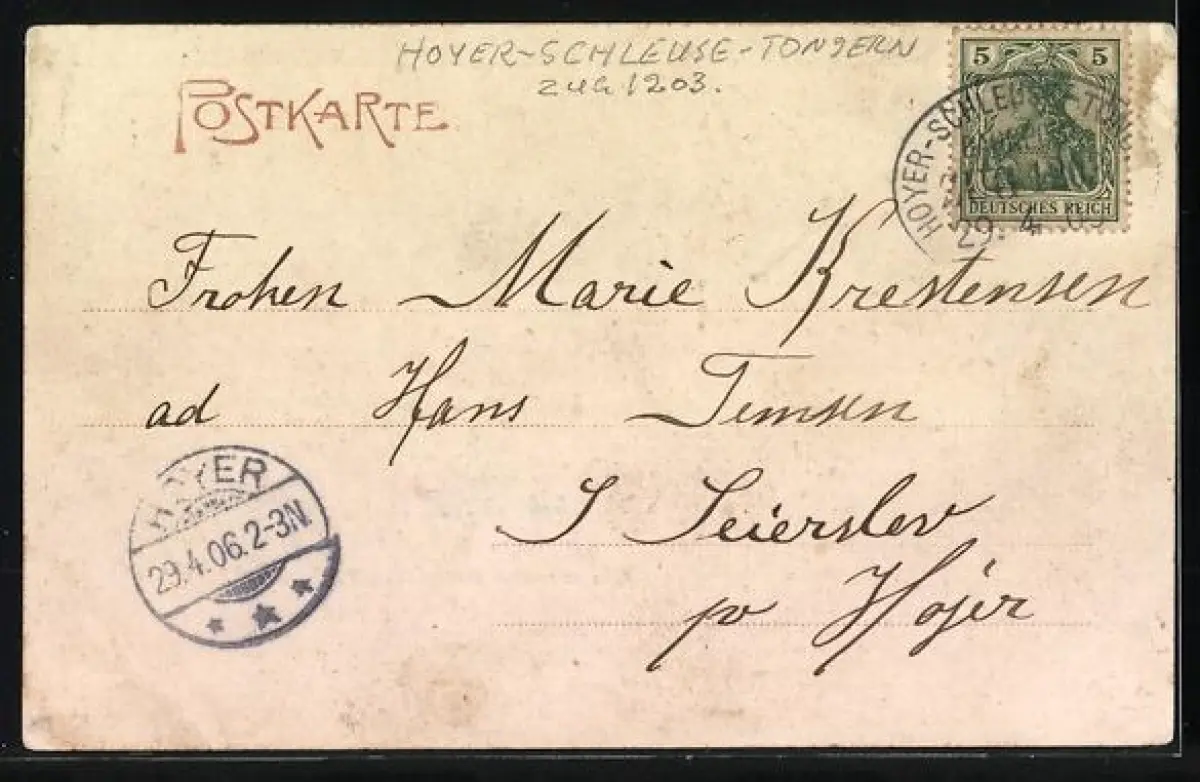 HOYER-SCHLEUSE-TONDERN
ZUG 1203.
POSTKARTE
5 5
DEUTSCHES REICH
HOYER-SCHLEUSE-TON
29. 4 06
Frohen Marie Krestensen
ad Hans Jemsen
I Seierslev
pr Hojer
HOYER
29.4.06.2-3N